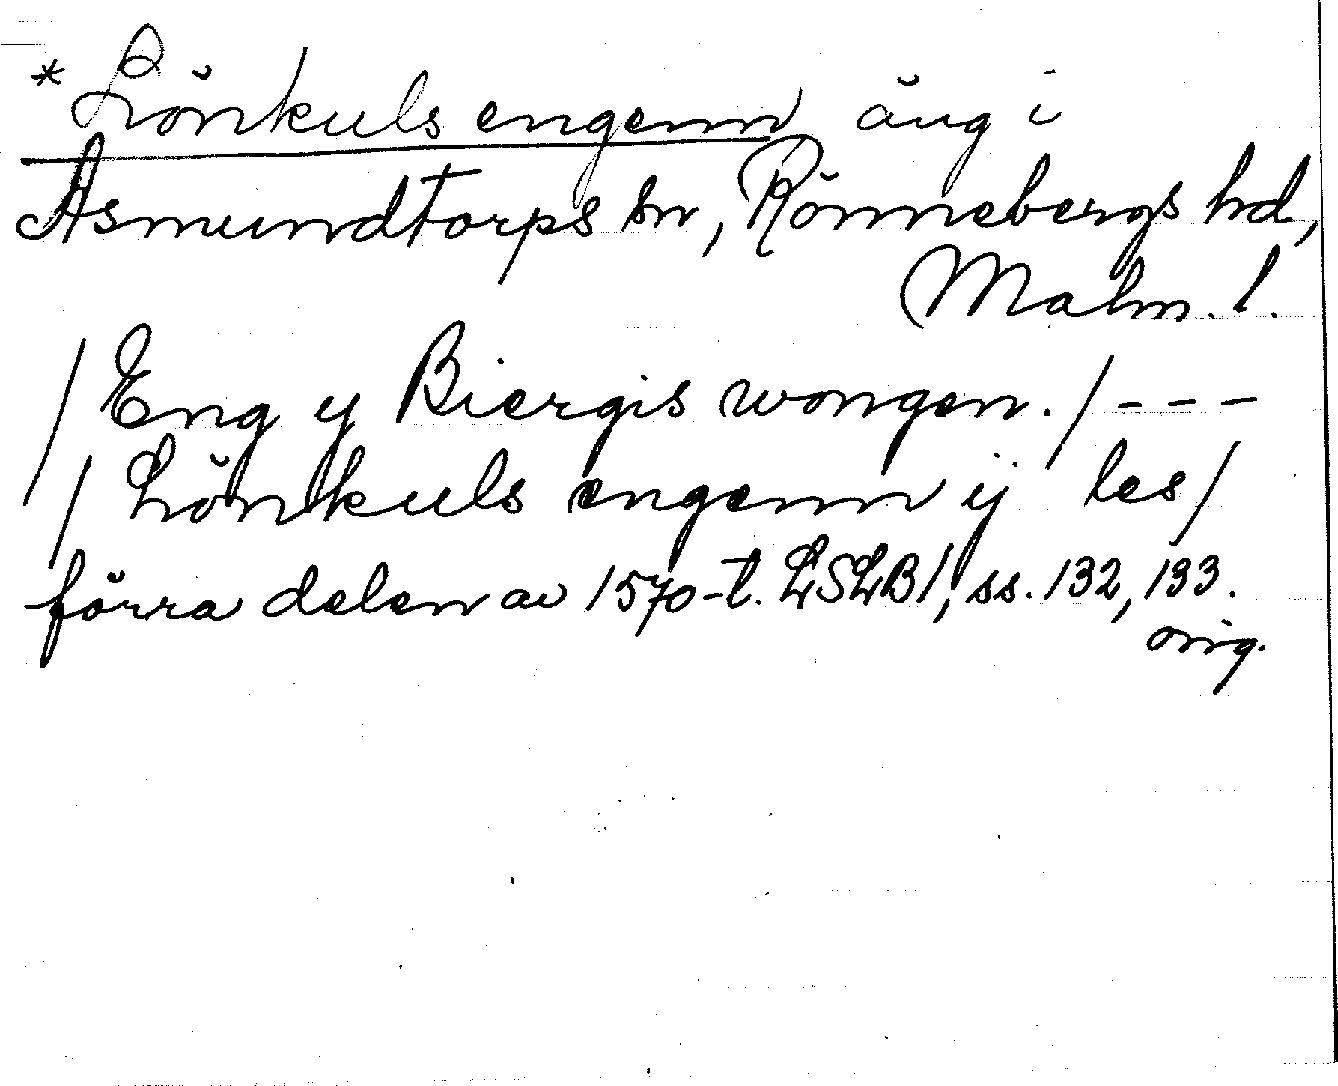 * Lönkuls engenn äng i
Asmundtorps sn, Rönnebergs hd,
Malm. l.
/ Eng y Biergis wongen. / - - -
/ Lönkuls engenn ij les /
förra delen av 1570-t. LSLB1, ss. 132, 133.
orig.